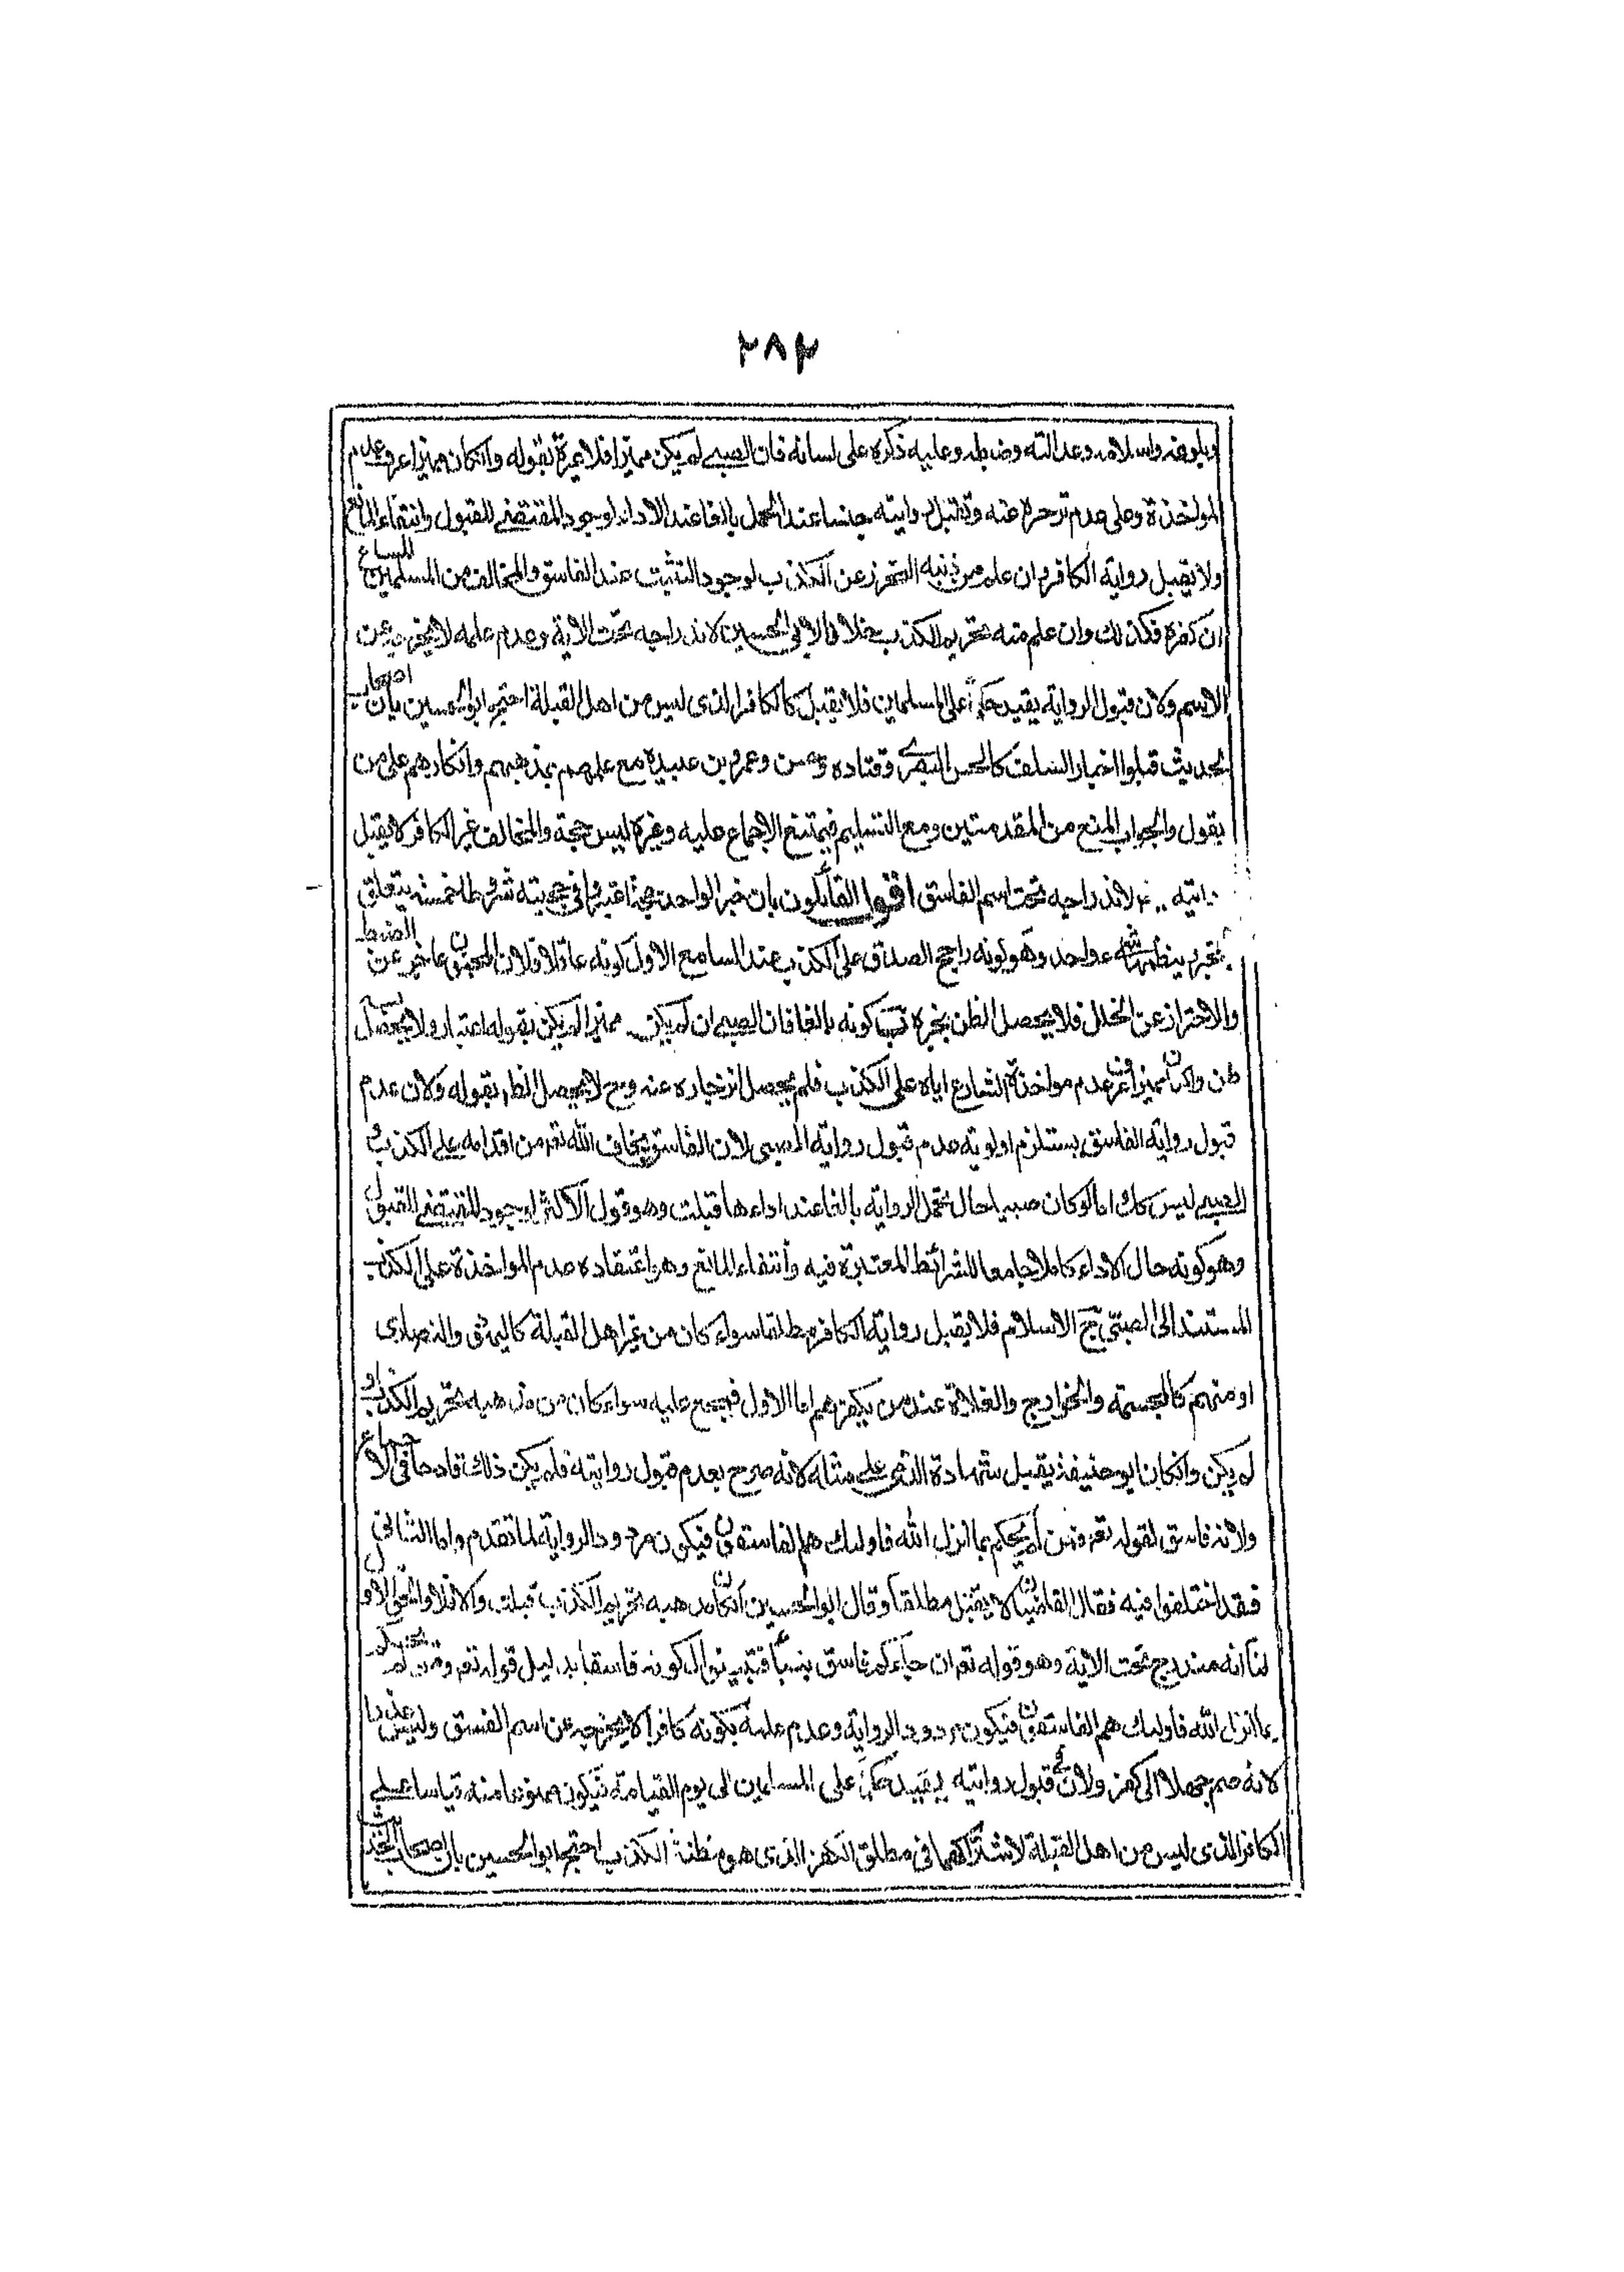 ٢٨٢
وبلوغه واسلامه وعدالته وضبطه وعليه ذكره على لسانه فان الصبي لم يكن مميزا فلا عبرة بقوله وانكان مميزا عرف عدم
المواخذة وعلى عدم تحرزه عنه وتقبل روايته عند التحمل بالغا عند الاداء لوجود المقتضي للقبول وانتفاء المانع
ولا تقبل رواية الكافر وان علم من دينه التحرز عن الكذب لوجود التثبت عند الفاسق والمخالف من المسلمين
ان كفره فكذلك وان علم منه تحريم الكذب خلافا لابي الحسين لاندراجه تحت الاية وعدم علمه لا يخرجه عن
الاسم ولان قبول الرواية يفيد حكما على المسلمين فلا يقبل كالكافر الذى ليس من اهل القبلة احتج ابو الحسين بان اصحاب
الحديث قبلوا اخبار السلف كالحسن البصرى وقتاده وعمرو بن عبيد مع علمهم بمذهبهم وانكارهم على من
يقول والجواب المنع من المقدمتين ومع التسليم فيمتنع الاجماع عليه وغيره ليس حجة والمخالف غير الكافر لا يقبل
روايته لاندراجه تحت اسم الفاسق اقول القائلون بان خبر الواحد حجة اعتبروا في حجيته شروطا خمسة يتعلق
بمخبره ينظمها شئ واحد وهو كونه راجح الصدق على الكذب عند السامع الاول كونه عاقلا فلان المجنون عاجز عن الضبط
والاحتراز عن الخلل فلا يحصل الظن بخبره ب كونه بالغا فان الصبي ان لم يكن مميزا لم يكن بقوله اعتبار ولا يحصل به
ظن وان كان مميزا عرف عدم مواخذة الشارع اياه على الكذب فلم يحصل انزجاره عنه وح لا يحصل الظن بقوله ولان عدم
قبول رواية الفاسق يستلزم اولوية عدم قبول رواية الصبى لان الفاسق يخاف الله تعه من اقدامه على الكذب و
الصبي ليس كك اما لو كان صبيا حال تحمل الرواية بالغا عند اداءها قبلت وهو قول الاكثر لوجود المقتضي للقبول
وهو كونه حال الاداء كاملا جامعا للشرائط المعتبرة فيه وانتفاء المانع وهو اعتقاده عدم المواخذة على الكذب
المستند الى الصبى ج الاسلام فلا يقبل رواية الكافر مطلقا سواء كان من غير اهل القبلة كاليهود والنصارى
او منهم كالمجسمة والخوارج والغلاة عند من يكفرهم اما الاول فمجمع عليه سواء كان من مذهبه تحريم الكذب او
لم يكن وانكان ابو حنيفة يقبل شهادة الذمي على مثله لانه صرح بعدم قبول روايته فلم يكن ذلك قادحا في الاجماع
ولانه فاسق لقوله تعه ومن لم يحكم بما انزل الله فاولئك هم الفاسقون فيكون مردود الرواية لما تقدم واما الثاني
فقد اختلفوا فيه فقال القاضيان لا يقبل مطلقا وقال ابو الحسين ان كان مذهبه تحريم الكذب قبلت والا فلا والحق الاول
لنا انه مندرج تحت الاية وهو قوله تعه ان جاءكم فاسق بنبأ فتبينوا لكونه فاسقا بدليل قوله تعه ومن لم يحكم
بما انزل الله فاولئك هم الفاسقون فيكون مردود الرواية وعدم علمه بكونه كافرا لا يخرجه عن اسم الفسق وليس عذرا
لانه ضم جهلا الى كفر ولان في قبول روايته تنفيذ حكما على المسلمين الى يوم القيامة فيكون ممنوعا منه قياسا على
الكافر الذى ليس من اهل القبلة لاشتراكهما فى مطلق الكفر الذى هو مظنة الكذب احتج ابو الحسين بان اصحاب الحديث